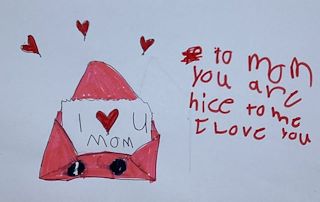 I ♥ U
MOM
to mom
you are
nice to me
I Love you